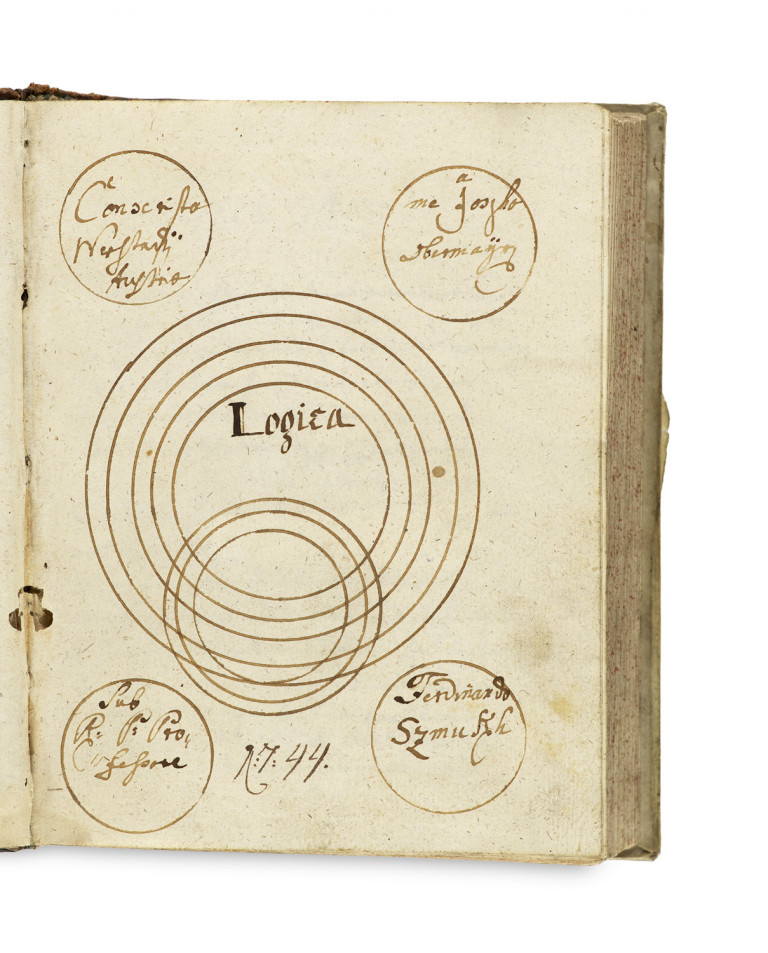 Conscripta
Neostadij
Austriæ
a
me Josepho
Obermayr
Logica
Sub
R: P: Pro,
fessore
Ferdinando
Szmu
1:7:44.